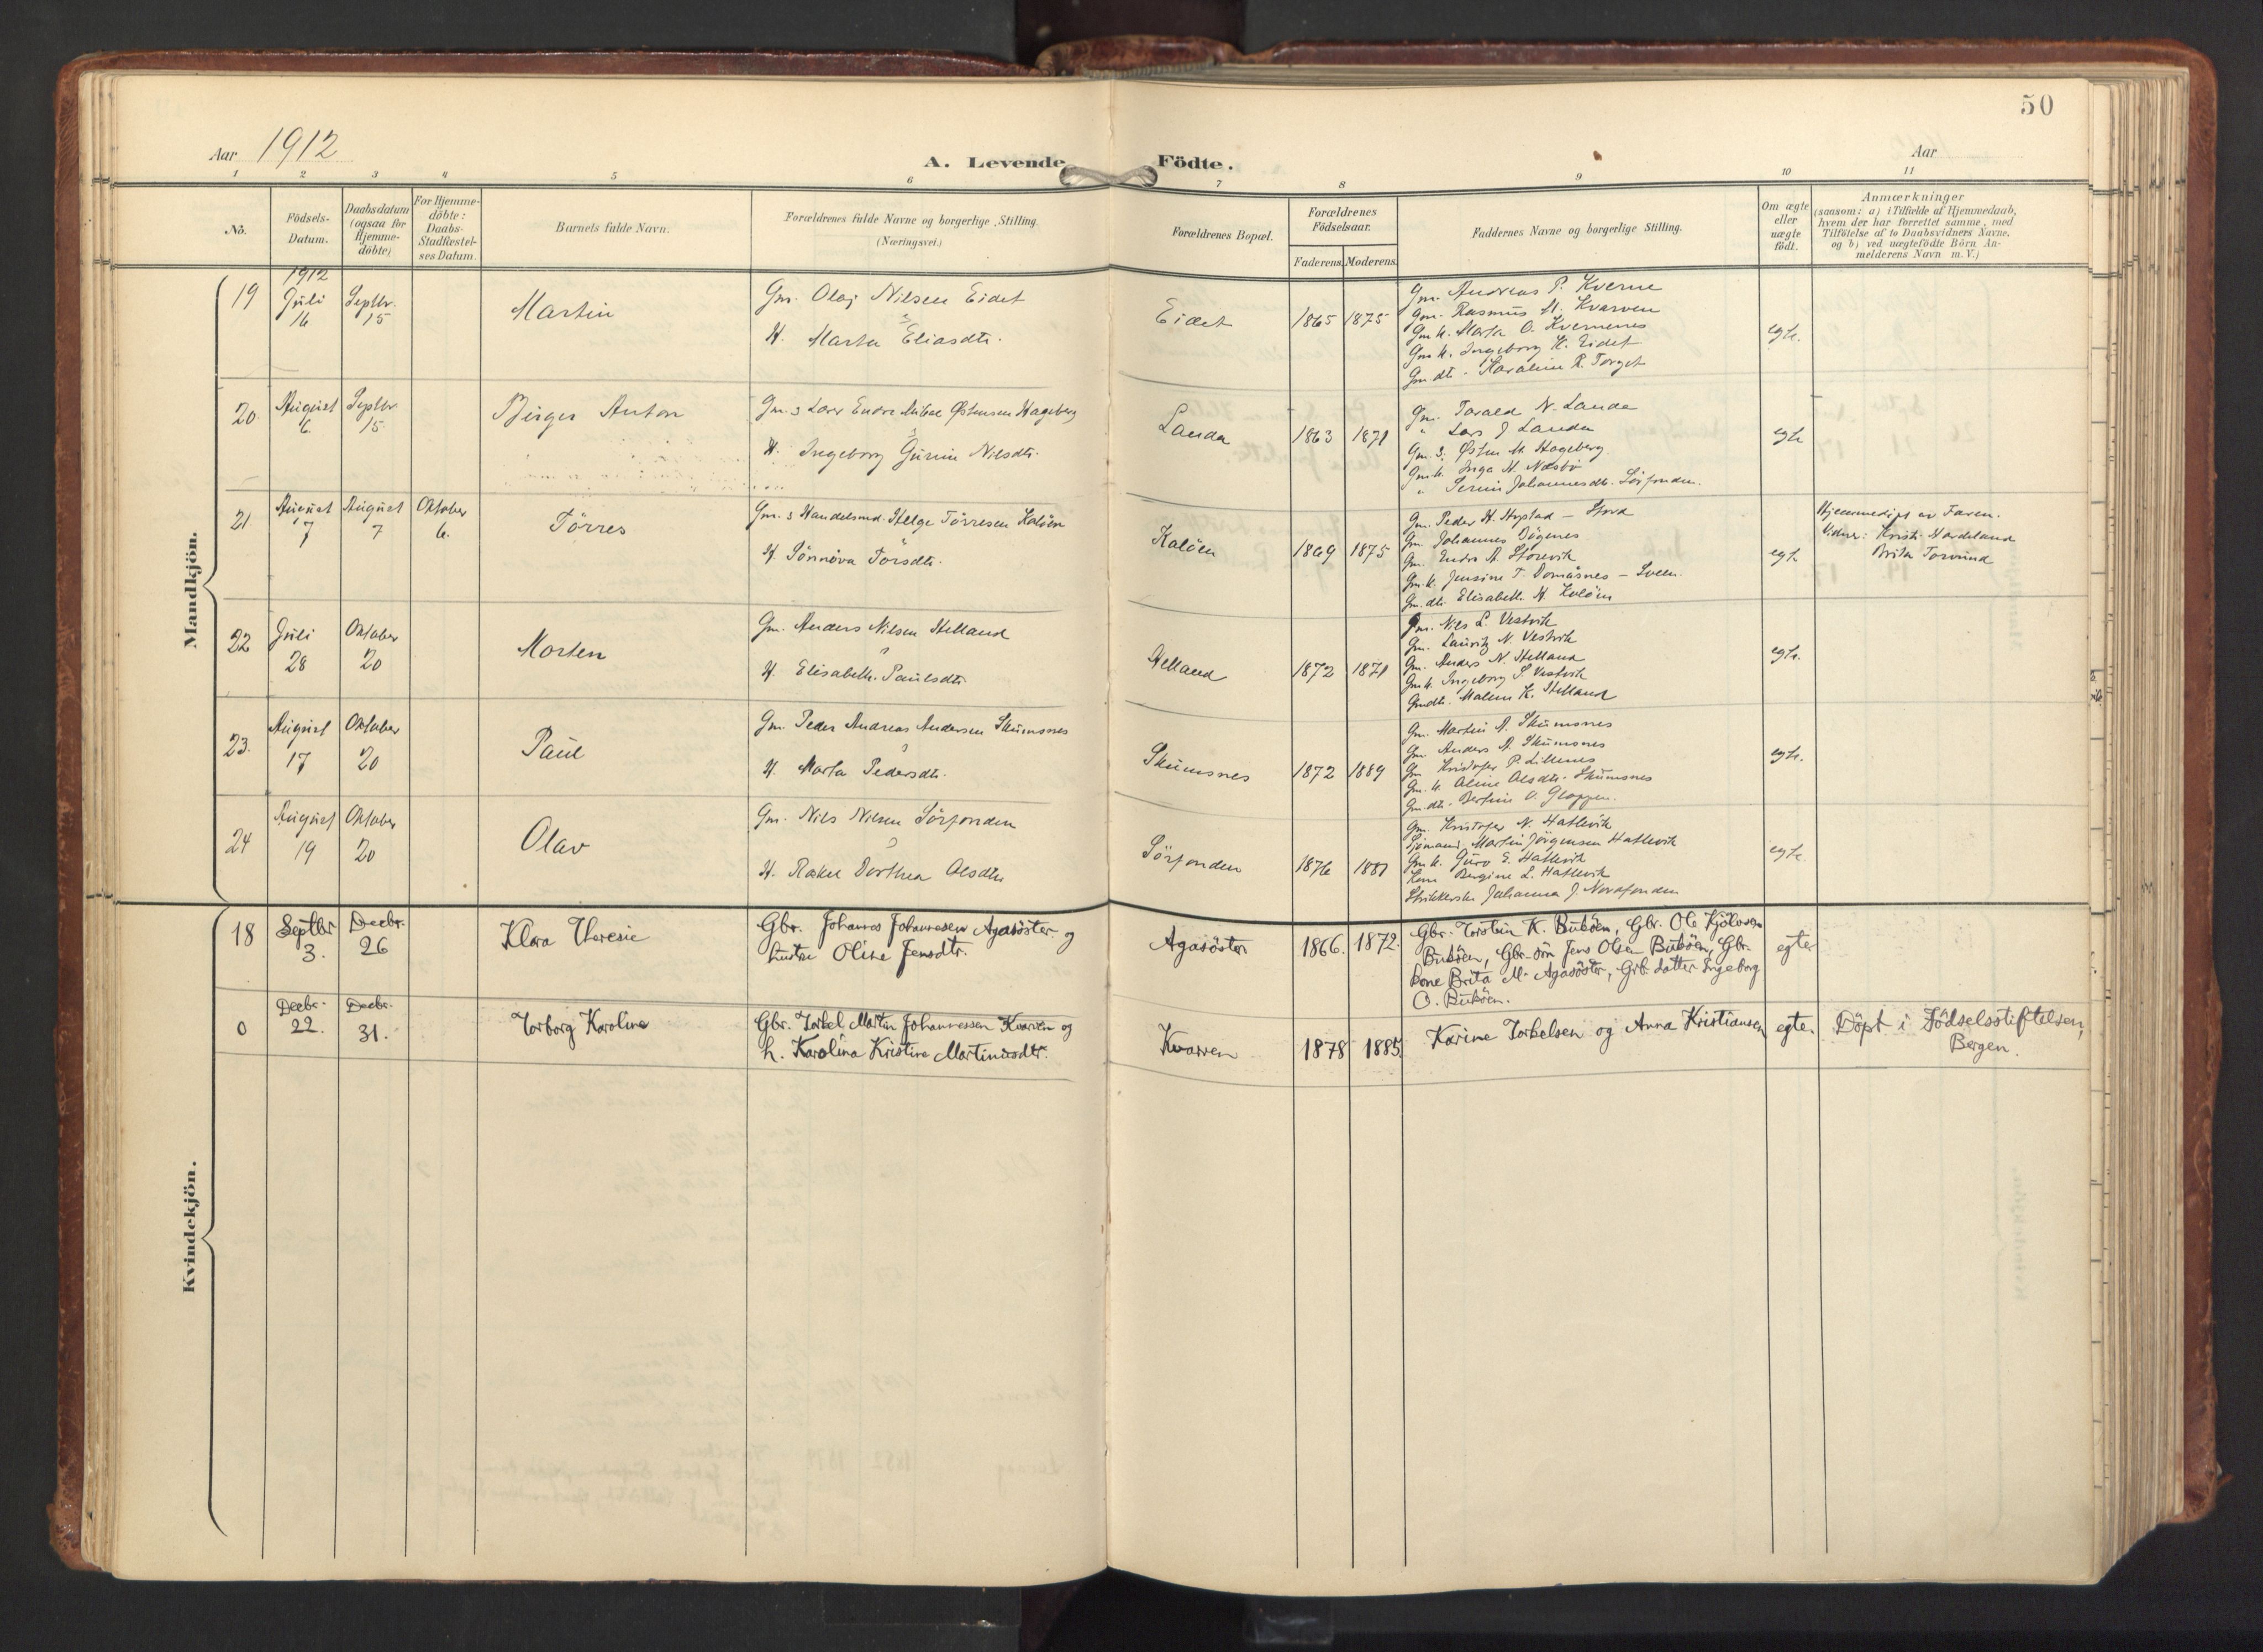 50
Aar 1912
A. Levende Födte.
Aar
1 2 3 4 5 6 7 8 9 10 11
No.
Födsels-Datum.
Daabsdatum (ogsaa for Hjemme-döbte)
For Hjemme-döbte: Daabs-Stadfæstel-ses Datum.
Barnets fulde Navn.
Forældrenes fulde Navne og borgerlige Stilling.
(Næringsvei.)
Forældrenes Bopæl.
Forældrenes Födselsaar.
Faderens. Moderens.
Faddernes Navne og borgerlige Stilling.
Om ægte eller uægte födt.
Anmærkninger
(saasom: a) i Tilfælde af Hjemmedaab,
hvem der har forrettet samme, med
Tilförelse af to Daabsvidners Navne,
og b) ved uægtefödte Börn An-
melderens Navn m.V.)
Mandkjön.
19
1912
Juli
16
Septbr.
15
Martin
Gm. Olaj Nilsen Eidet
H. Marta Eliasdtr.
Eidet
1865 1875
Gm. Andreas P. Kverne
Gm. Rasmus M. Kvarven
Gm k. Marta O. Kvernenes
Gm k. Ingeborg K. Eidet
Gm. dtr. Karoline R. Torget
egte.
20.
August
6.
Septbr.
15
Birger Anton
Gm. s Lærer Endre Mikal Østensen Hageberg
H. Ingeborg Gurine Nilsdtr.
Landa
1863 1871
Gm. Torald N. Landa
" Lars J Landa
Gm. s. Østen M. Hageberg.
Gm. k. Inga H. Næsbö
" Serine Johannesdtr. Sörfonden.
egte
21
August
7
August
7
Oktober
6.
Törres
Gm. s Handelsmd. Helge Törresen Kalöen
H Sönnöva Torsdtr.
Kalöen
1869 1875
Gm. Peder H. Hystad - Stord
Gm. Johannes Bögenes
Gm. Endre A. Storevik
Gm. k. Jensine T. Domåsnes - Sveen.
Gm. dtr. Elisabeth H. Kalöen
egte
Hjemmedöpt av Faren.
Vidner: Kristi Hardeland
Brita Torvund
22
Juli
28
Oktober
20
Morten
Gm. Anders Nilsen Helland
H. Elisabeth Paulsdtr.
Helland
1872 1871
Gm. Nils L. Vestvik
Gm. Lauritz N. Vestvik
Gm. Anders N. Helland
Gm k. Ingeborg S. Vestvik
Gmdtr. Malene K. Helland
egte.
23.
August
17
Oktober
20
Paul
Gm. Peder Andreas Andersen Skumsnes
H. Marta Pedersdtr.
Skumsnes
1872 1889
Gm. Martin A. Skumsnes
Gm. Anders A. Skumsnes
Gm. Kristofer P. Lillenes
Gm. k. Aline Olsdtr. Skumsnes
Gm. dtr. Bertine O. Gloppen.
egte.
24
August
19
Oktober
20
Olav
Gm. Nils Nilsen Sörfonden
H. Rakel Dorthea Olsdtr.
Sörfonden
1876 1881
Gm. Kristofer N. Hatlevik
Sjömand Martin Jörgensen Hatlevik
Gm k. Guro E. Hatlevik
Kone Bergine L. Hatlevik
Strikkerske Johanna J. Norafonden
egte.
Kvindekjön.
18
Septbr
3.
Decbr.
26
Klara Theresie
Gbr. Johannes Johannesen Agasöster og
hustru Oline Jensdtr.
Agasöster
1866. 1872.
Gbr. Torstein K. Buköen, Gbr. Ole Kjölvsen
Buköen, Gbr-sön Jens Olsen Buköen, Gbr.
kone Brita M. Agasöster, Grb. datter Ingeborg
O. Buköen.
egte
0
Decbr.
22.
Decbr.
31.
Torborg Karoline
Gbr. Torkel Martin Johannessen Kvarven og
h. Karolina Kristine Martinusdtr.
Kvarven
1878 1885
Karine Torkelsen og Anna Kristiansen
egte.
Döpt i Födselsstiftelsen,
Bergen.